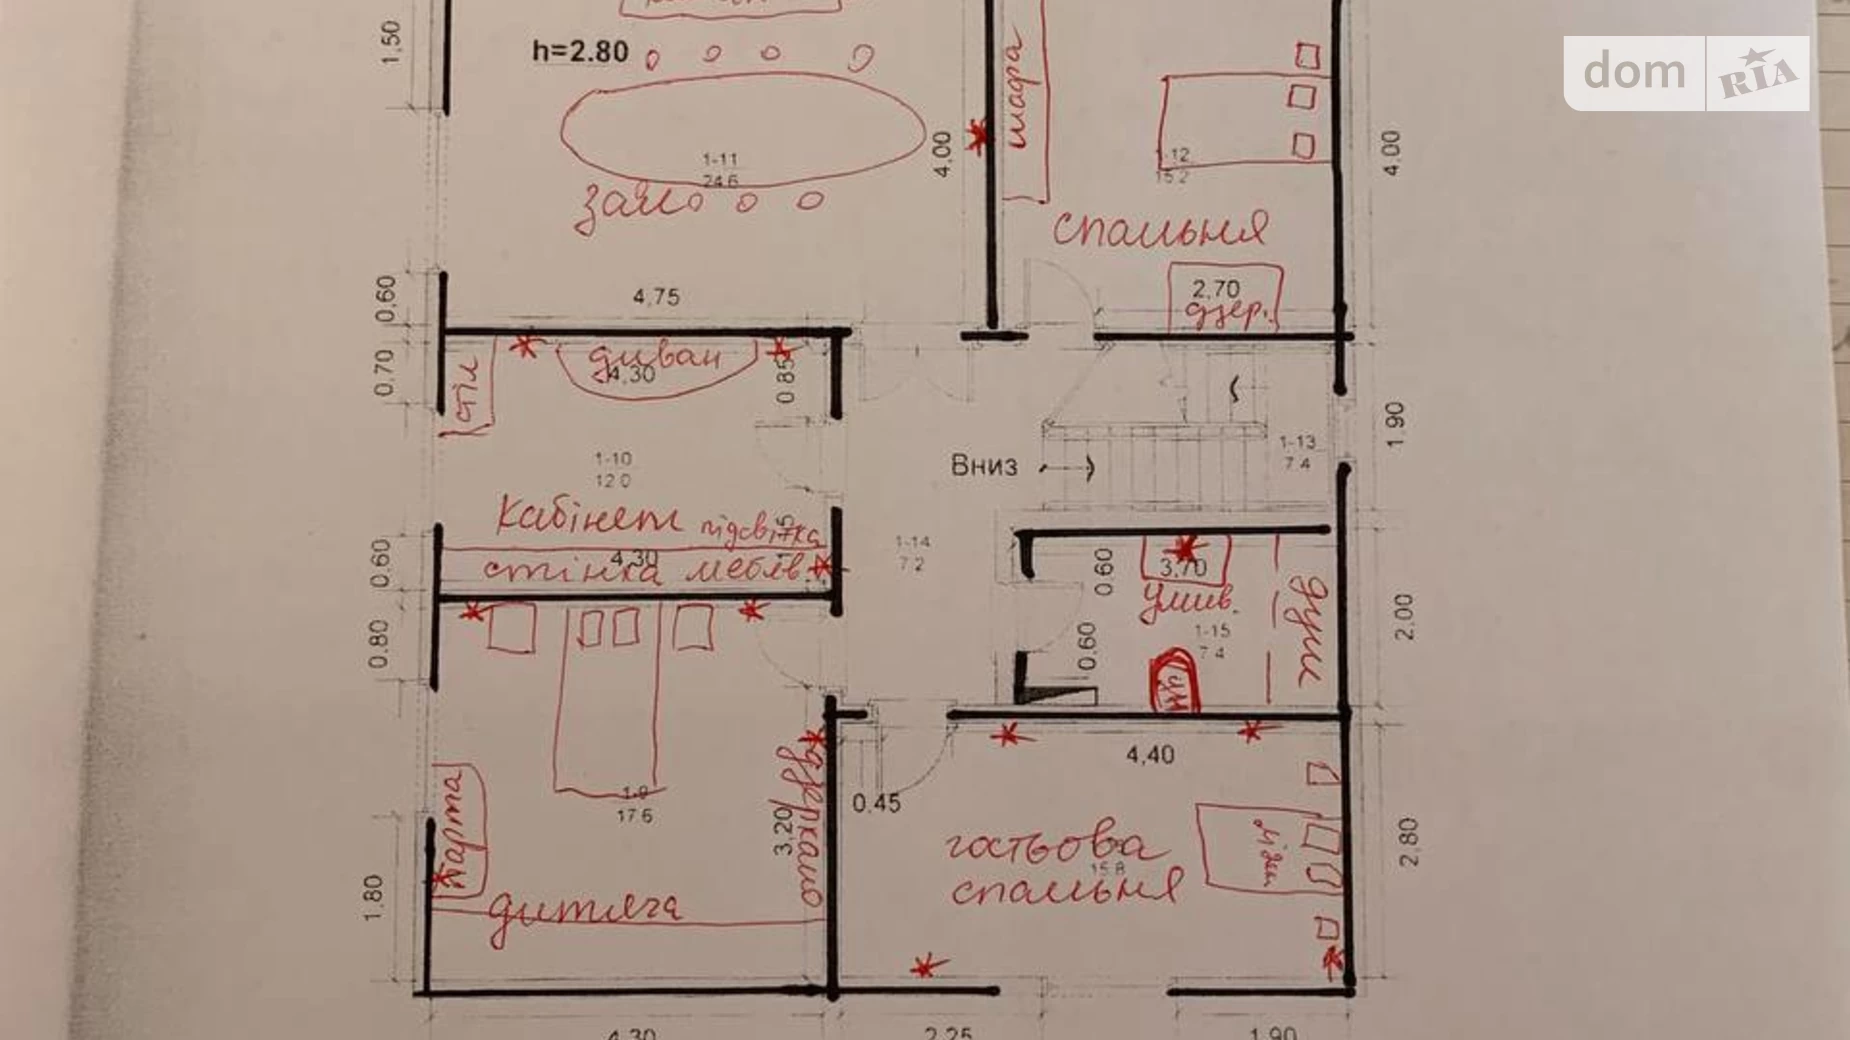 dom RIA
1,50
h=2.80
шафа
4,00
4,00
1-11
24.6
зал
1-12
15.2
спальня
0,60
4,75
2,70
дзер.
0,70
стіл
диван
4,30
0.85
1,90
1-13
7.4
Вниз
1-10
12.0
Кабінет підсвітка
0,60
4,30
стінка меблів
1-14
7.2
0,60
3,70
умив.
душ
2,00
0,80
0,60
1-15
7.4
4,40
0.45
1-9
17.6
парта
3,20
дзеркало
гостьова
15.8
спальня
2,80
1,80
дитяча
4,30
2,25
1,90